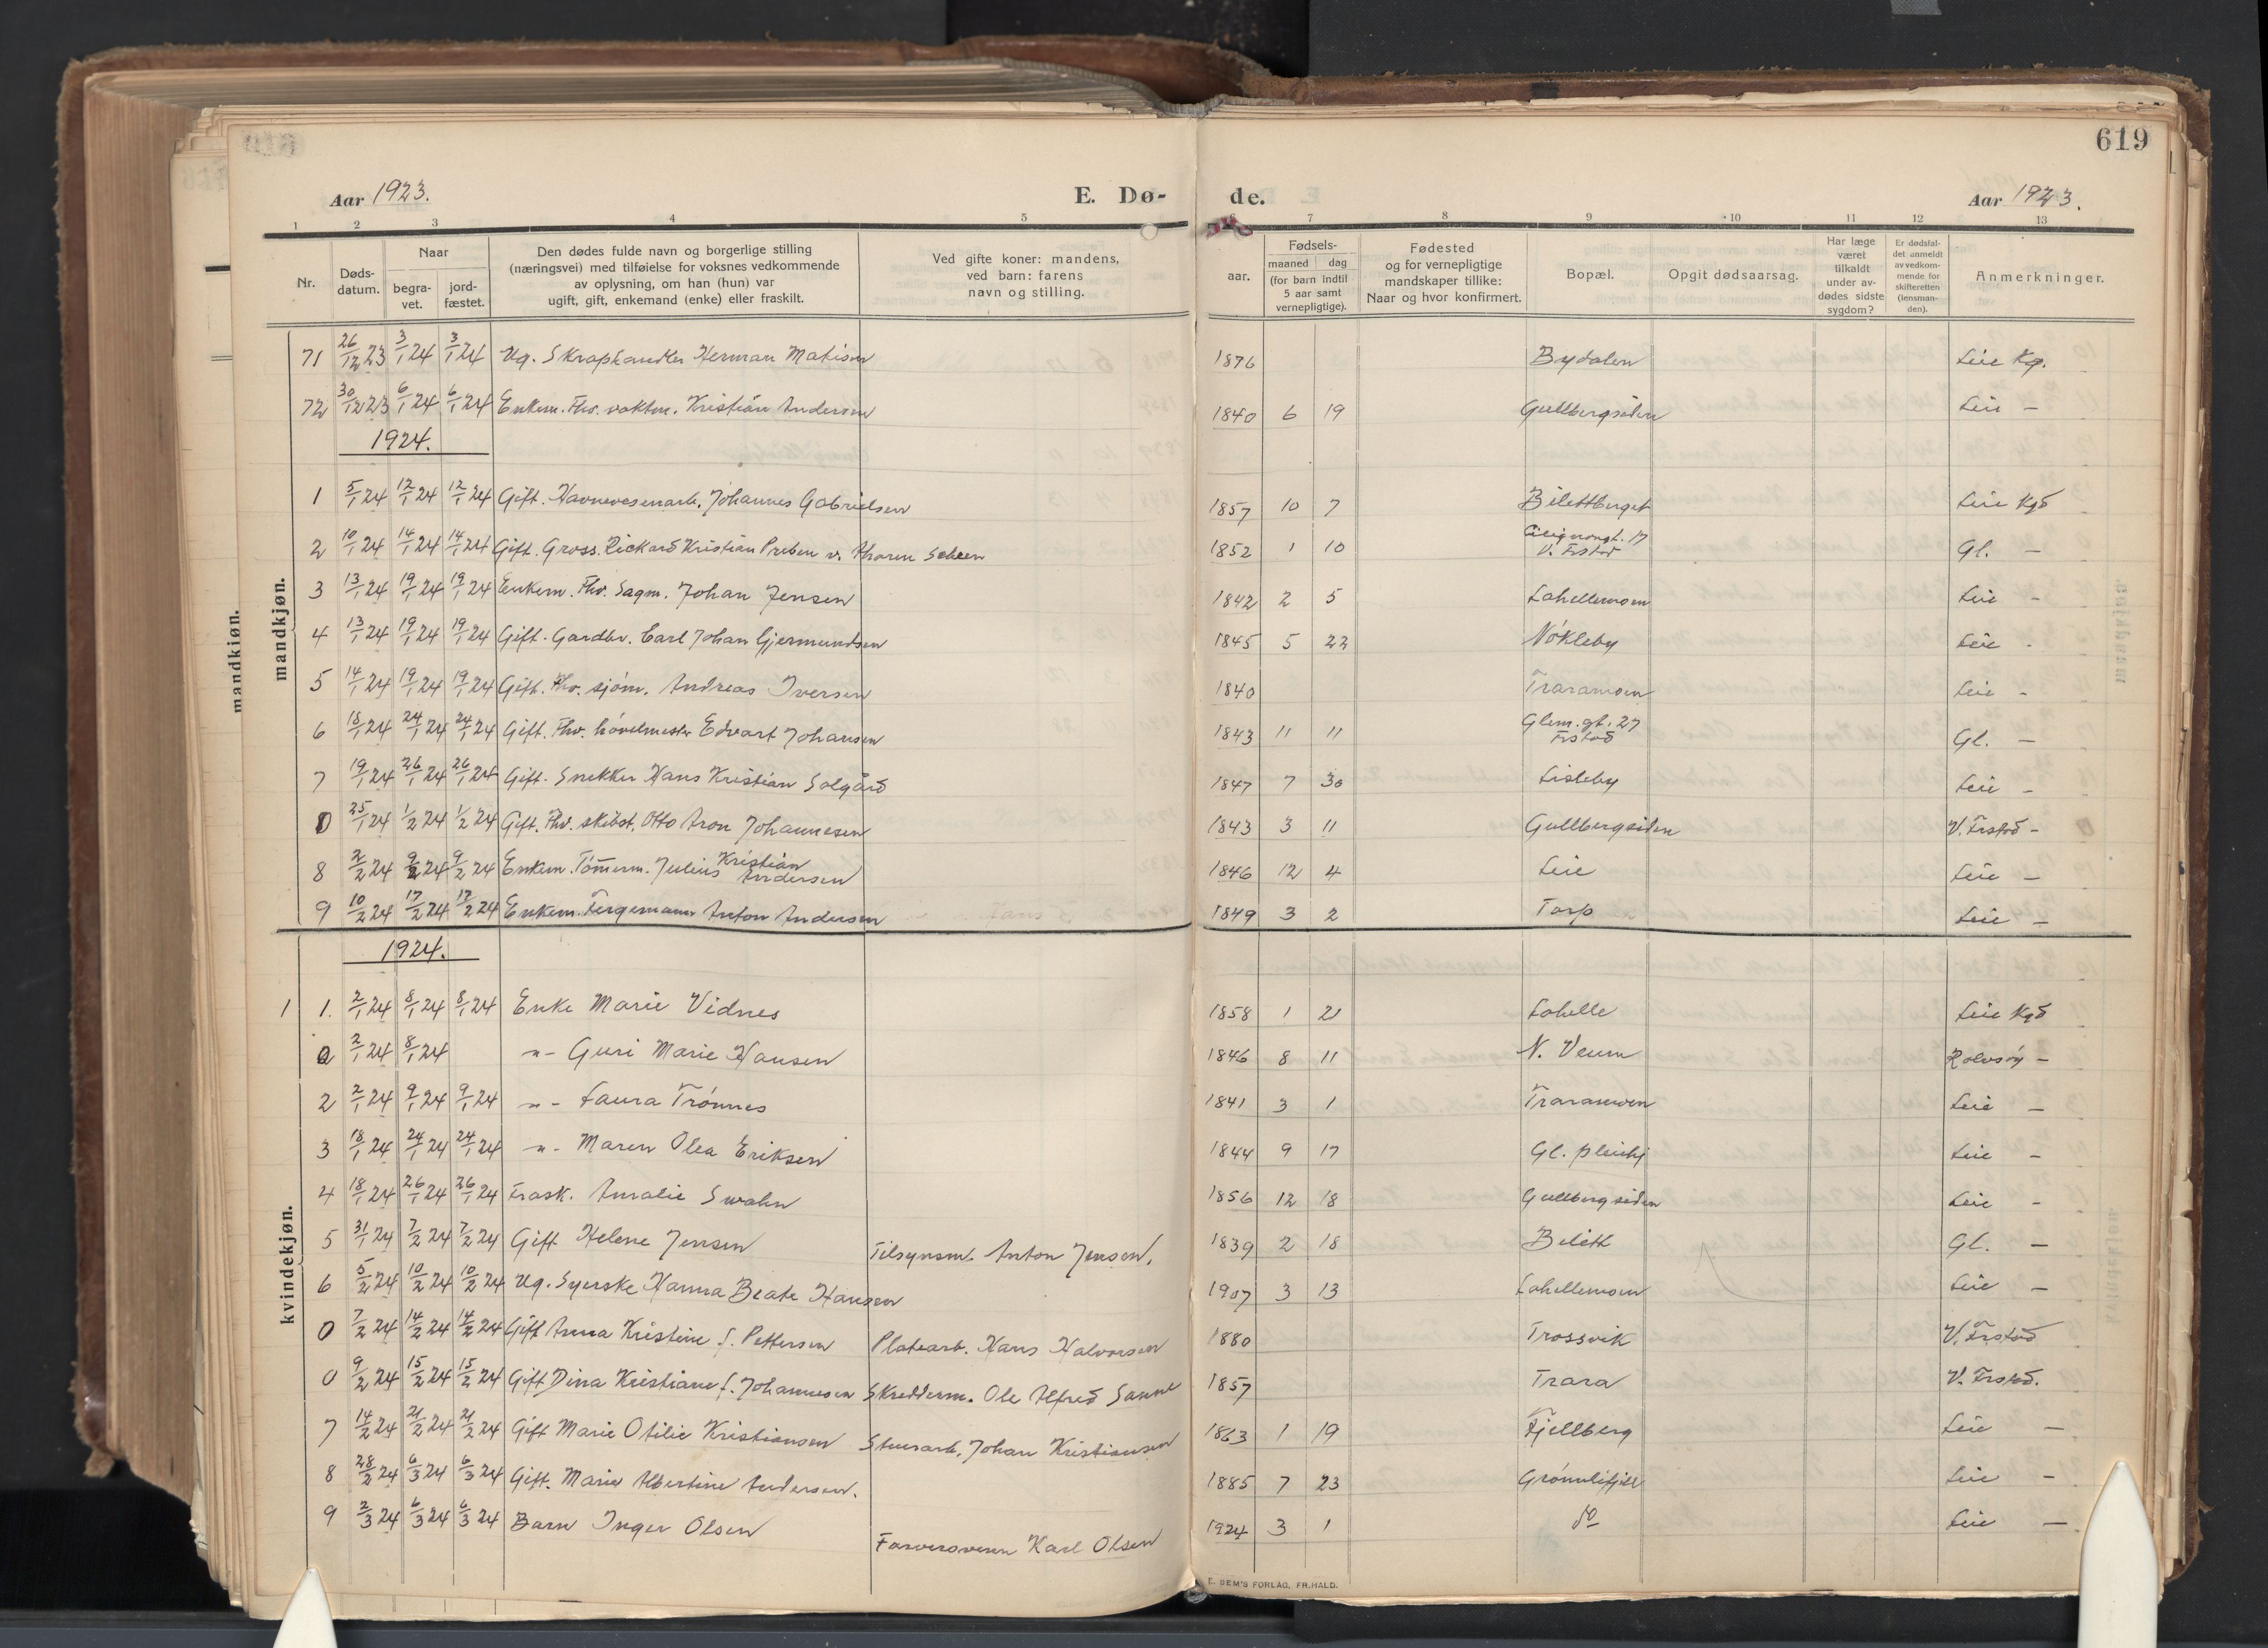 619
Aar 1923. E. Dø- de. Aar 1923.
1 2 3 4 5 6 7 8 9 10 11 12 13
Nr. Døds-datum. Naar begra-vet. jord-fæstet. Den dødes fulde navn og borgerlige stilling (næringsvei) med tilføielse for voksnes vedkommende av oplysning, om han (hun) var ugift, gift, enkemand (enke) eller fraskilt. Ved gifte koner: mandens, ved barn: farens navn og stilling. Fødsels- aar. maaned dag (for barn indtil 5 aar samt vernepligtige). Fødested og for vernepligtige mandskaper tillike: Naar og hvor konfirmert. Bopæl. Opgit dødsaarsag. Har læge været tilkaldt under av-dødes sidste sygdom? Er dødsfal-det anmeldt av vedkom-mende for skifteretten (lensman-den). Anmerkninger.
mandkjøn.
mandkjøn.
71 26/12 23 3/1 24 3/1 24 Ug. Skraphandler Herman Matisen 1876 Bydalen Leie Kg.
72 30/12 23 6/1 24 6/1 24 Enkem. Fhv. vaktm. Kristian Andersen 1840 6 19 Gullbergsiden Leie —
1924.
1 5/1 24 12/1 24 12/1 24 Gift. Havnevesenarb. Johannes Gabrielsen 1857 10 7 Bilettberget Leie Kgd
2 10/1 24 14/1 24 14/1 24 Gift. Gross. Rickard Kristian Preben v. Tharen Scheen 1852 1 10 V. Frstad Gl. —
3 13/1 24 19/1 24 19/1 24 Enkem. Fhv. Sagm. Johan Jensen 1842 2 5 Lahellemoen Leie -
4 13/1 24 19/1 24 19/1 24 Gift. Gardbr. Carl Johan Gjermundsen 1845 5 22 Nökleby Leie -
5 14/1 24 19/1 24 19/1 24 Gift. Fhv. sjöm. Andreas Iversen 1840 Traramoen Leie -
6 18/1 24 24/1 24 24/1 24 Gift. Fhv. hövelmester Edvart Johansen 1843 11 11 Glem.gt. 27 Frstad Gl. —
7 19/1 24 26/1 24 26/1 24 Gift. Snekker Hans Kristian Solgård 1847 7 30 Lisleby Leie -
0 25/1 24 1/2 24 1/2 24 Gift. Fhv. skibst. Otto Aron Johannesen 1843 3 11 Gullbergsiden V. Frstad -
8 2/2 24 9/2 24 9/2 24 Enkem. Tömerm. Julius Kristian Andersen 1846 12 4 Leie Leie —
9 10/2 24 17/2 24 17/2 24 Enkem. Fergemann Anton Andersen 1849 3 2 Torp Leie —
1924.
kvindekjøn.
1 1. 2/1 24 8/1 24 8/1 24 Enke Marie Vidnes 1858 1 21 Lahelle Leie Kgd
0 2/1 24 8/1 24 -"- Guri Marie Hansen 1846 8 11 N. Veum Rolvsøy —
2 2/1 24 9/1 24 9/1 24 -"- Laura Trönnes 1841 3 1 Traramoen Leie —
3 18/1 24 24/1 24 24/1 24 -"- Maren Olea Eriksen 1844 9 17 Gl. pleiehj Leie -
4 18/1 24 26/1 24 26/1 24 Frask. Amalie Swahn 1856 12 18 Gullbergsiden Leie -
5 31/1 24 7/2 24 7/2 24 Gift Helene Jensen Tilsynsm. Anton Jensen. 1839 2 18 Bilett Gl. —
6 5/2 24 10/2 24 10/2 24 Ug. Syerske Hanna Beate Hansen 1907 3 13 Lahellemoen Leie —
0 7/2 24 14/2 24 14/2 24 Gift Anna Kristine f. Pettersen Platearb. Hans Halvorsen 1880 Trossvik V. Frstad
0 9/2 24 15/2 24 15/2 24 Gift Dina Kristiane f. Johannesen Skredderm. Ole Alfred Sanne 1857 Trara V. Frstad.
7 14/2 24 21/2 24 21/2 24 Gift Marie Otilie Kristiansen Stuerarb. Johan Kristiansen 1863 1 19 Fjellberg Leie —
8 28/2 24 6/3 24 6/3 24 Gift. Marie Albertine Andersen. 1885 7 23 Grönnlifjell Leie -
9 2/3 24 6/3 24 6/3 24 Barn Inger Olsen Farversvenn Karl Olsen 1924 3 1 do Leie —
E. SEM'S FORLAG, FR.HALD.